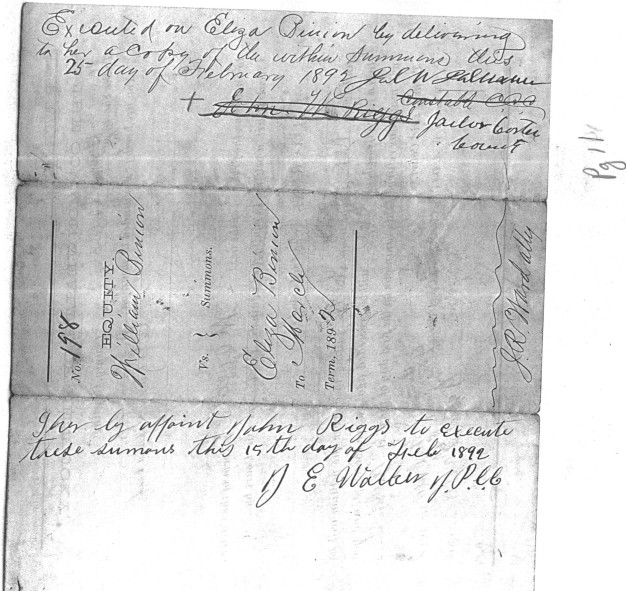 Executed on Eliza Binion by delivering
to her a Copy of the within Summons this
25 day of February 1892
+ John W Riggs Jailor Carter
County
No. 198
EQUITY.
William Binion
Vs. } Summons.
Eliza Binion
To March
Term. 1892
J. R. Ward atty
I her by appoint John Riggs to execute
these sumons this 15th day of Feb 1892
J E Walker J.P.C.C
Pg 1/4